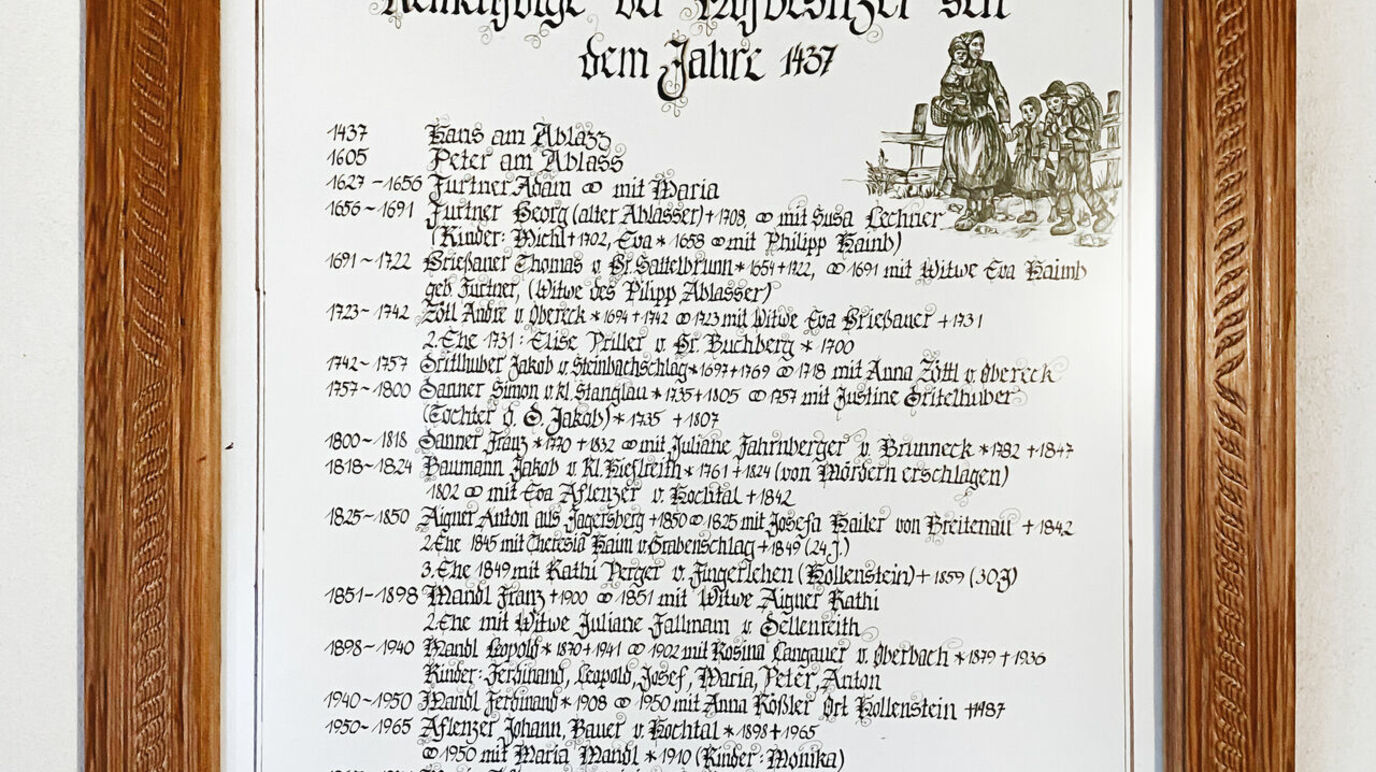 Reihenfolge der Hofbesitzer seit
dem Jahre 1437
1437 Hans am Ablazz
1605 Peter am Ablass
1627 - 1656 Furtner Adam ⚭ mit Maria
1656 - 1691 Furtner Georg (alter Ablasser) + 1708, ⚭ mit Susa Lechner
(Kinder: Michl + 1702, Eva * 1658 ⚭ mit Philipp Haimb)
1691 - 1722 Grießauer Thomas v. Gr. Sattelbrunn * 1654 + 1722, ⚭ 1691 mit Witwe Eva Haimb
geb. Furtner, (Witwe des Pilipp Ablasser)
1723 - 1742 Zöttl Andre v. Obereck * 1694 + 1742 ⚭ 1723 mit Witwe Eva Grießauer + 1731
2. Ehe 1731: Elise Priller v. Gr. Buchberg * 1700
1742 - 1757 Gritlhuber Jakob v. Steinbachschlag * 1697 + 1769 ⚭ 1718 mit Anna Zöttl v. Obereck
1757 - 1800 Sanner Simon v. kl. Stanglau * 1735 + 1805 ⚭ 1757 mit Justine Gritelhuber
(Tochter d. G. Jakob) * 1735 + 1807
1800 - 1818 Sanner Franz * 1770 + 1832 ⚭ mit Juliane Fahrnberger v. Brunneck * 1782 + 1847
1818 - 1824 Baumann Jakob v. Kl. Kieflreith * 1761 + 1824 (von Mördern erschlagen)
1802 ⚭ mit Eva Aflenzer v. Hochtal + 1842
1825 - 1850 Aigner Anton aus Jagersberg + 1850 ⚭ 1825 mit Josefa Hailer von Breitenau + 1842
2. Ehe 1845 mit Theresia Haim v. Grabenschlag + 1849 (24 J.)
3. Ehe 1849 mit Kathi Perger v. Fingerlehen (Hollenstein) + 1859 (30 J)
1851 - 1898 Mandl Franz + 1900 ⚭ 1851 mit Witwe Aigner Kathi
2. Ehe mit Witwe Juliane Fallmam v. Sellenreith
1898 - 1940 Mandl Leopold * 1870 + 1941 ⚭ 1902 mit Rosina Langauer v. Oberbach * 1879 + 1936
Kinder: Ferdinand, Leopold, Josef, Maria, Peter, Anton
1940 - 1950 Mandl Ferdinand * 1908 ⚭ 1950 mit Anna Rößler Ort Hollenstein
1950 - 1965 Aflenzer Johann, Bauer v. Hochtal * 1898 + 1965
⚭ 1950 mit Maria Mandl * 1910 (Kinder: Monika)